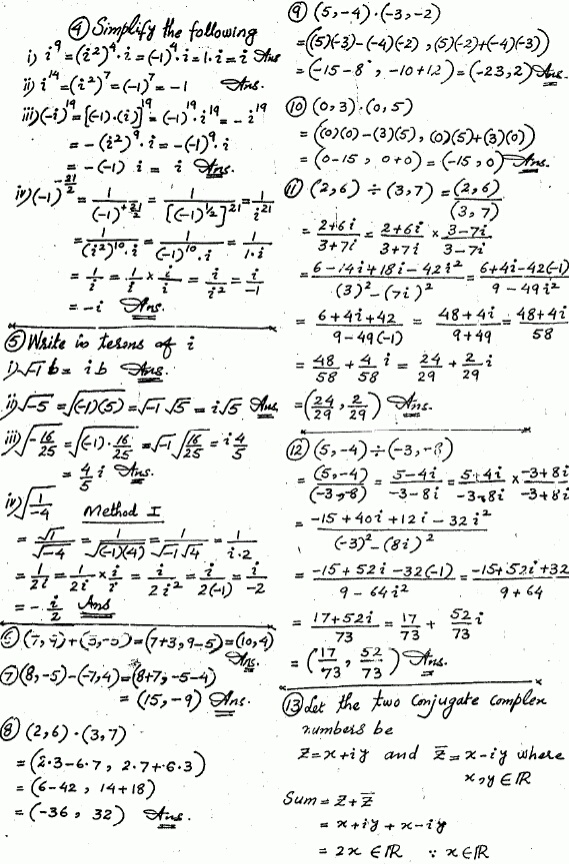 ④ Simplify the following
i) i⁹ = (i²)⁴·i = (-1)⁴·i = 1·i = i Ans
ii) i¹⁴ = (i²)⁷ = (-1)⁷ = -1 Ans.
iii) (-i)¹⁹ = [(-1)·(i)]¹⁹ = (-1)¹⁹·i¹⁹ = -i¹⁹
= -(i²)⁹·i = -(-1)⁹·i
= -(-1) i = i Ans.
iv) (-1)^(-21/2) = 1/(-1)^(+21/2) = 1/[(-1)^(1/2)]²¹ = 1/i²¹
= 1/((i²)¹⁰·i) = 1/((-1)¹⁰·i) = 1/(1·i)
= 1/i = 1/i × i/i = i/i² = i/-1
= -i Ans.
⑤ Write in terms of i
i) √-1 b = ib Ans.
ii) √-5 = √(-1)(5) = √-1 √5 = i√5 Ans
iii) √-16/25 = √(-1)·16/25 = √-1 √16/25 = i 4/5
= 4/5 i Ans.
iv) √1/-4 Method I
= √1/√-4 = 1/√(-1)(4) = 1/(√-1 √4) = 1/(i·2)
= 1/2i = 1/2i × i/i = i/2i² = i/2(-1) = i/-2
= -i/2 Ans
⑥ (7,9)+(3,-5) = (7+3, 9-5) = (10,4)
Ans.
⑦ (8,-5)-(-7,4) = (8+7, -5-4)
= (15, -9) Ans.
⑧ (2,6)·(3,7)
= (2·3-6·7, 2·7+6·3)
= (6-42, 14+18)
= (-36, 32) Ans.
⑨ (5,-4)·(-3,-2)
= ((5)(-3)-(-4)(-2), (5)(-2)+(-4)(-3))
= (-15-8, -10+12) = (-23,2) Ans.
⑩ (0,3)·(0,5)
= ((0)(0)-(3)(5), (0)(5)+(3)(0))
= (0-15, 0+0) = (-15,0) Ans.
⑪ (2,6) ÷ (3,7) = (2,6)/(3,7)
= (2+6i)/(3+7i) = (2+6i)/(3+7i) × (3-7i)/(3-7i)
= (6-14i+18i-42i²)/((3)²-(7i)²) = (6+4i-42(-1))/(9-49i²)
= (6+4i+42)/(9-49(-1)) = (48+4i)/(9+49) = (48+4i)/58
= 48/58 + 4/58 i = 24/29 + 2/29 i
= (24/29, 2/29) Ans.
⑫ (5,-4) ÷ (-3,-8)
= (5,-4)/(-3,-8) = (5-4i)/(-3-8i) = (5-4i)/(-3-8i) × (-3+8i)/(-3+8i)
= (-15+40i+12i-32i²)/((-3)²-(8i)²)
= (-15+52i-32(-1))/(9-64i²) = (-15+52i+32)/(9+64)
= (17+52i)/73 = 17/73 + 52/73 i
= (17/73, 52/73) Ans.
⑬ Let the two conjugate complex
numbers be
Z = x+iy and Z̅ = x-iy where
x,y ∈ ℝ
Sum = Z + Z̅
= x+iy + x-iy
= 2x ∈ ℝ ∵ x ∈ ℝ